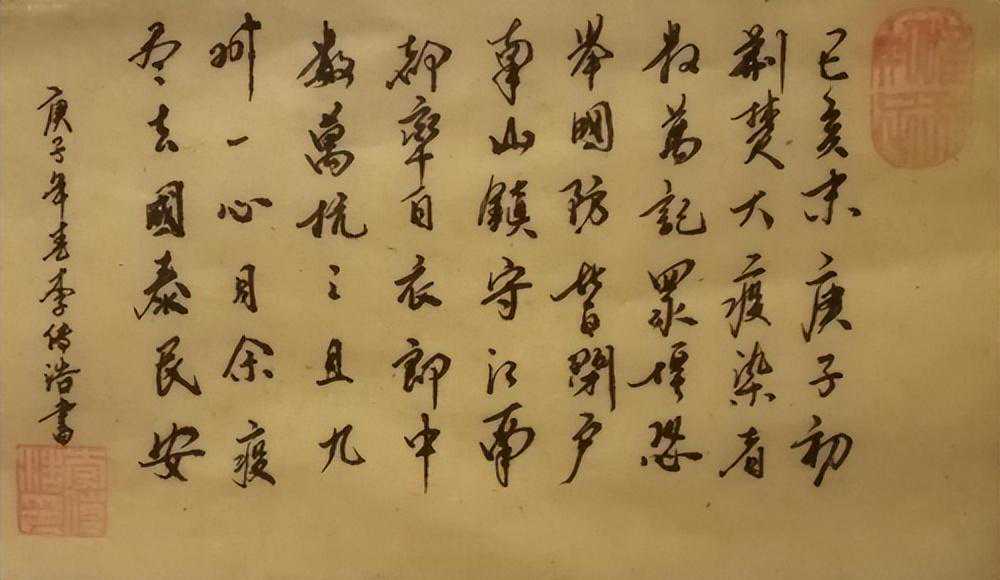 己亥末庚子初
荆楚大疫染者
数萬記眾惶恐
举国防皆閉户
南山鎮守江南
都率白衣郎中
數萬抗之且九
州一心月余疫
尽去國泰民安
庚子年春李传浩書